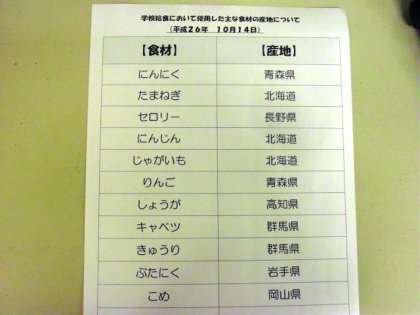 学校給食において使用した主な食材の産地について
(平成26年 10月14日)
【食材】 【産地】
にんにく 青森県
たまねぎ 北海道
セロリー 長野県
にんじん 北海道
じゃがいも 北海道
りんご 青森県
しょうが 高知県
キャベツ 群馬県
きゅうり 群馬県
ぶたにく 岩手県
こめ 岡山県